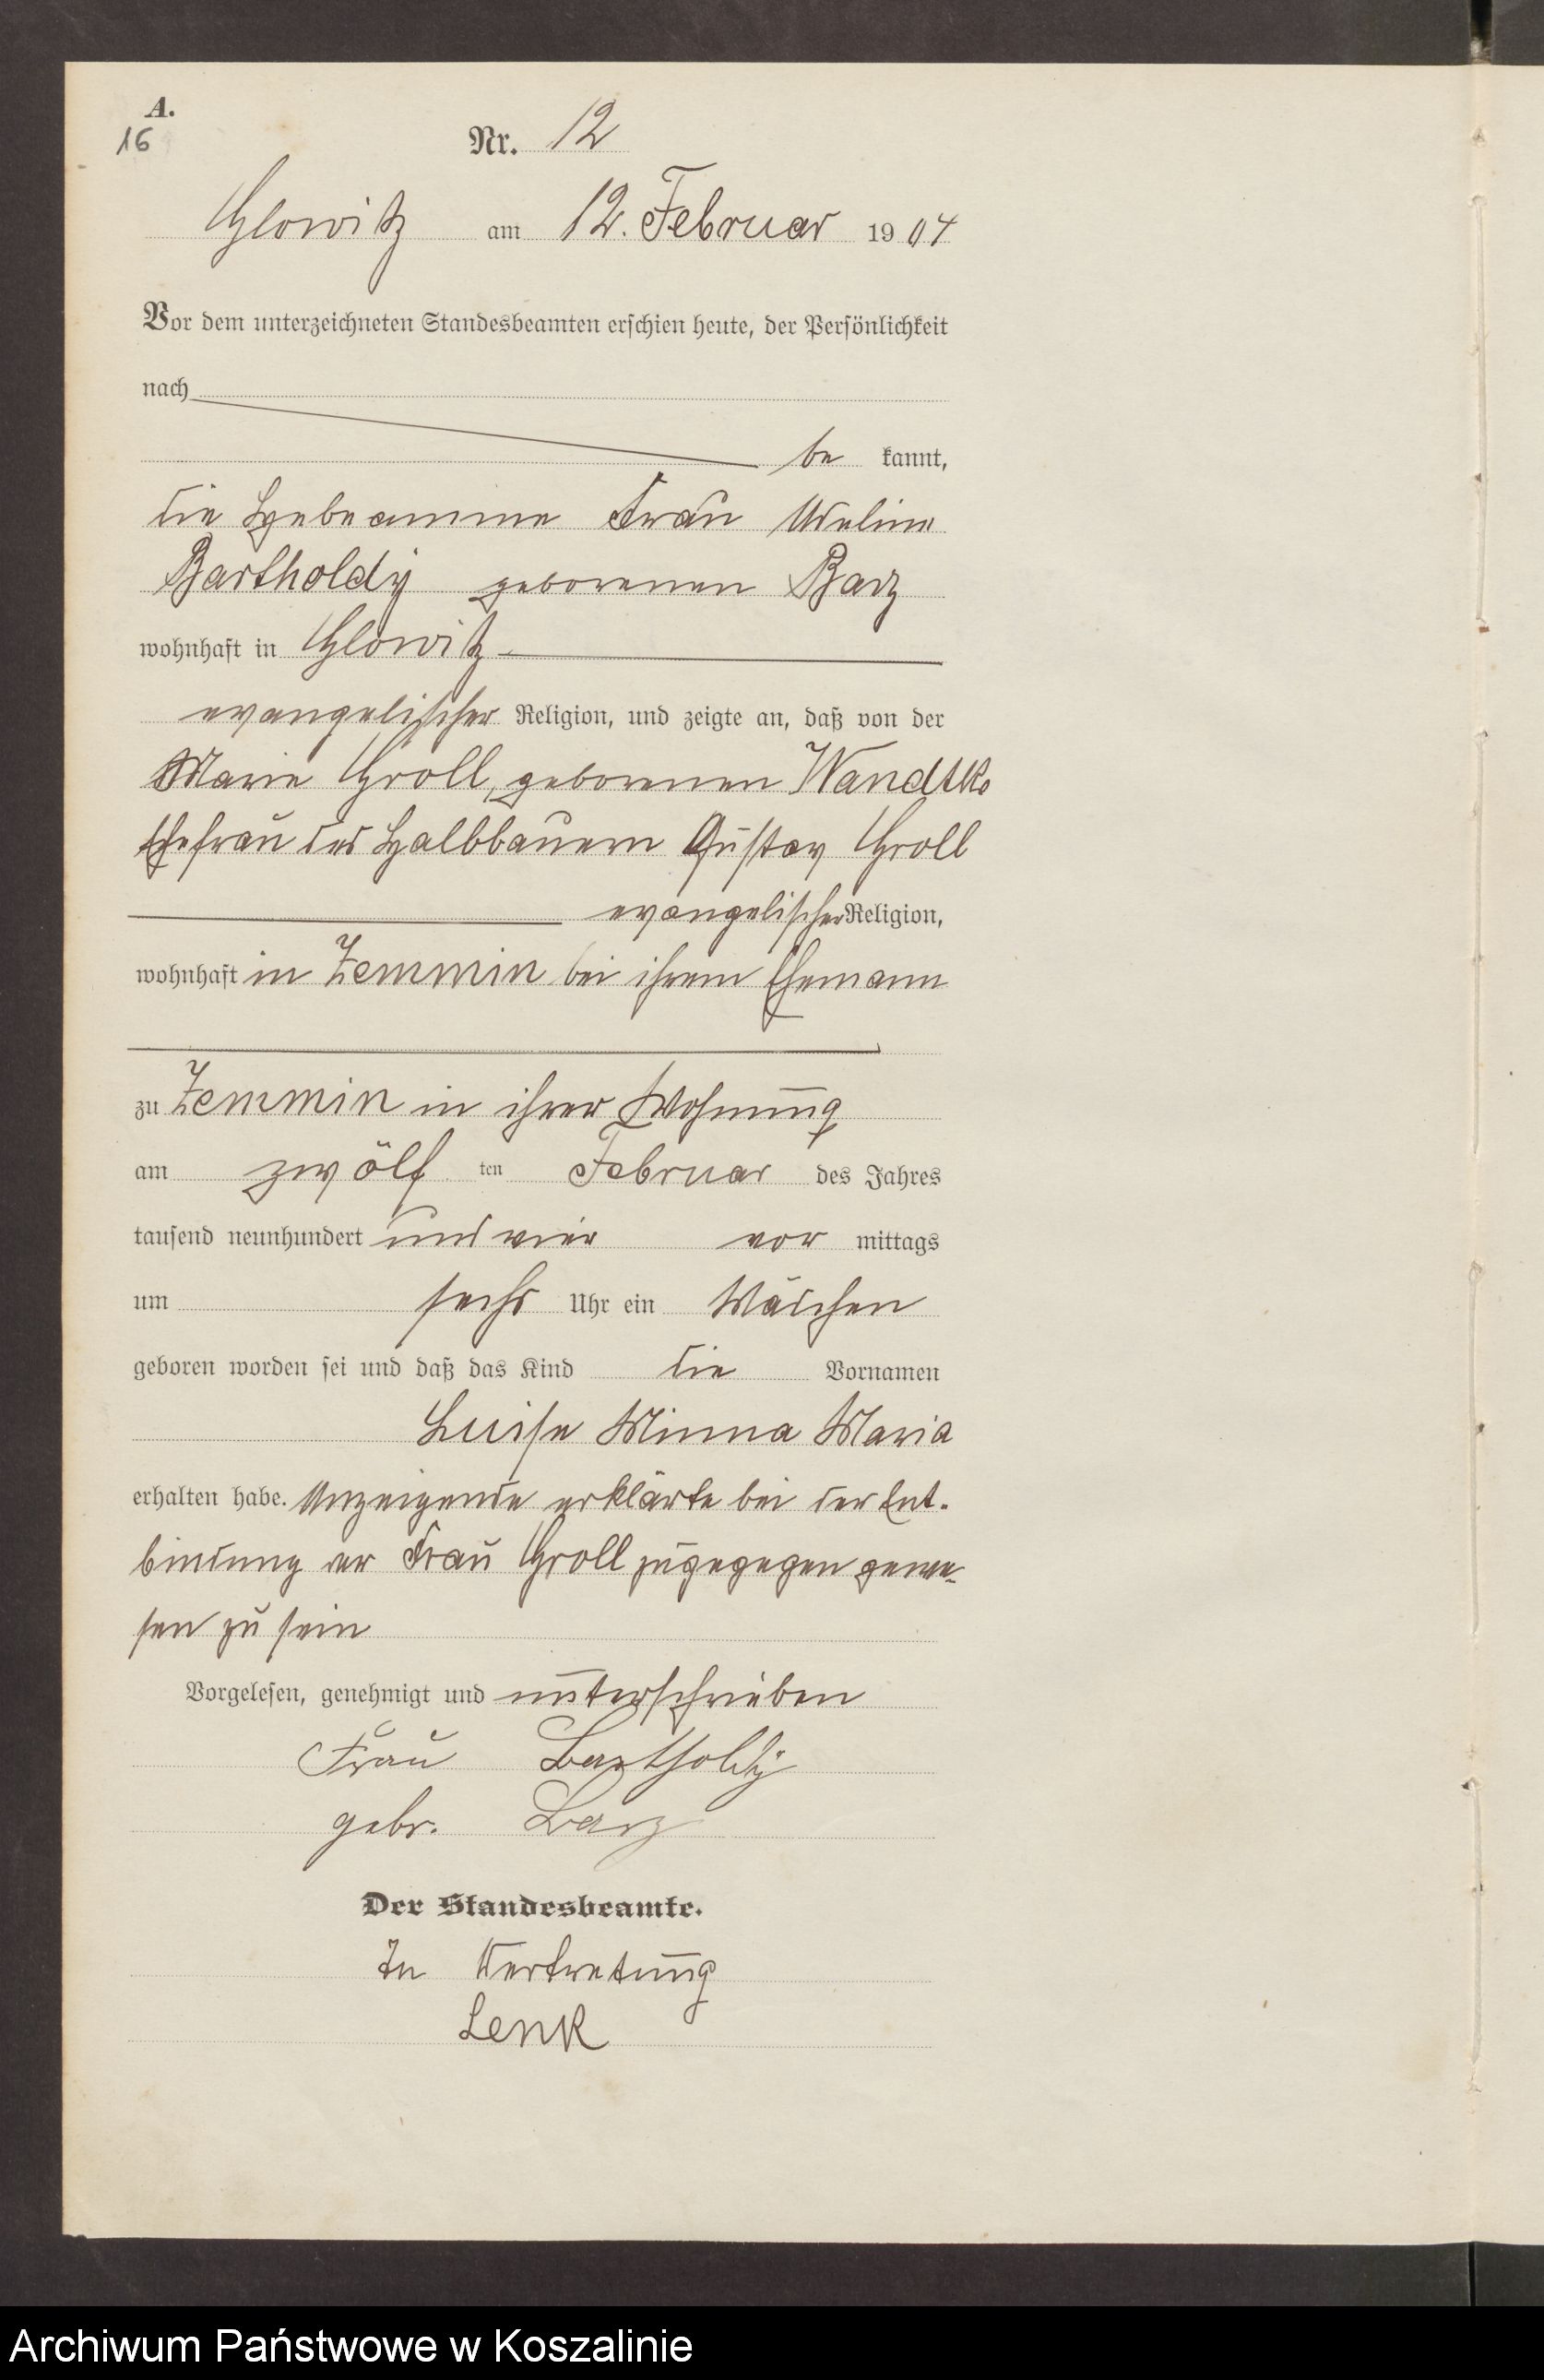 A.
16
Nr. 12
Glowitz am 12. Februar 1904
Vor dem unterzeichneten Standesbeamten erschien heute, der Persönlichkeit
nach
be kannt,
die Hebeamme Frau Adeline
Bartholdy geborenen Barz
wohnhaft in Glowitz
evangelischer Religion, und zeigte an, daß von der
Marie Groll, geborenen Wandtke
Ehefrau des Halbbauern Gustav Groll
evangelischer Religion,
wohnhaft in Zemmin bei ihrem Ehemann
zu Zemmin in ihrer Wohnung
am zwölf ten Februar des Jahres
tausend neunhundert und vier vor mittags
um sechs Uhr ein Mädchen
geboren worden sei und daß das Kind die Vornamen
Luise Minna Maria
erhalten habe. Anzeigende erklärte bei der Ent-
bindung der Frau Groll zugegegen gewe-
sen zu sein
Vorgelesen, genehmigt und unterschrieben
Frau Bartholdy
gebr. Barz
Der Standesbeamte.
In Vertretung
Lenk
Archiwum Państwowe w Koszalinie